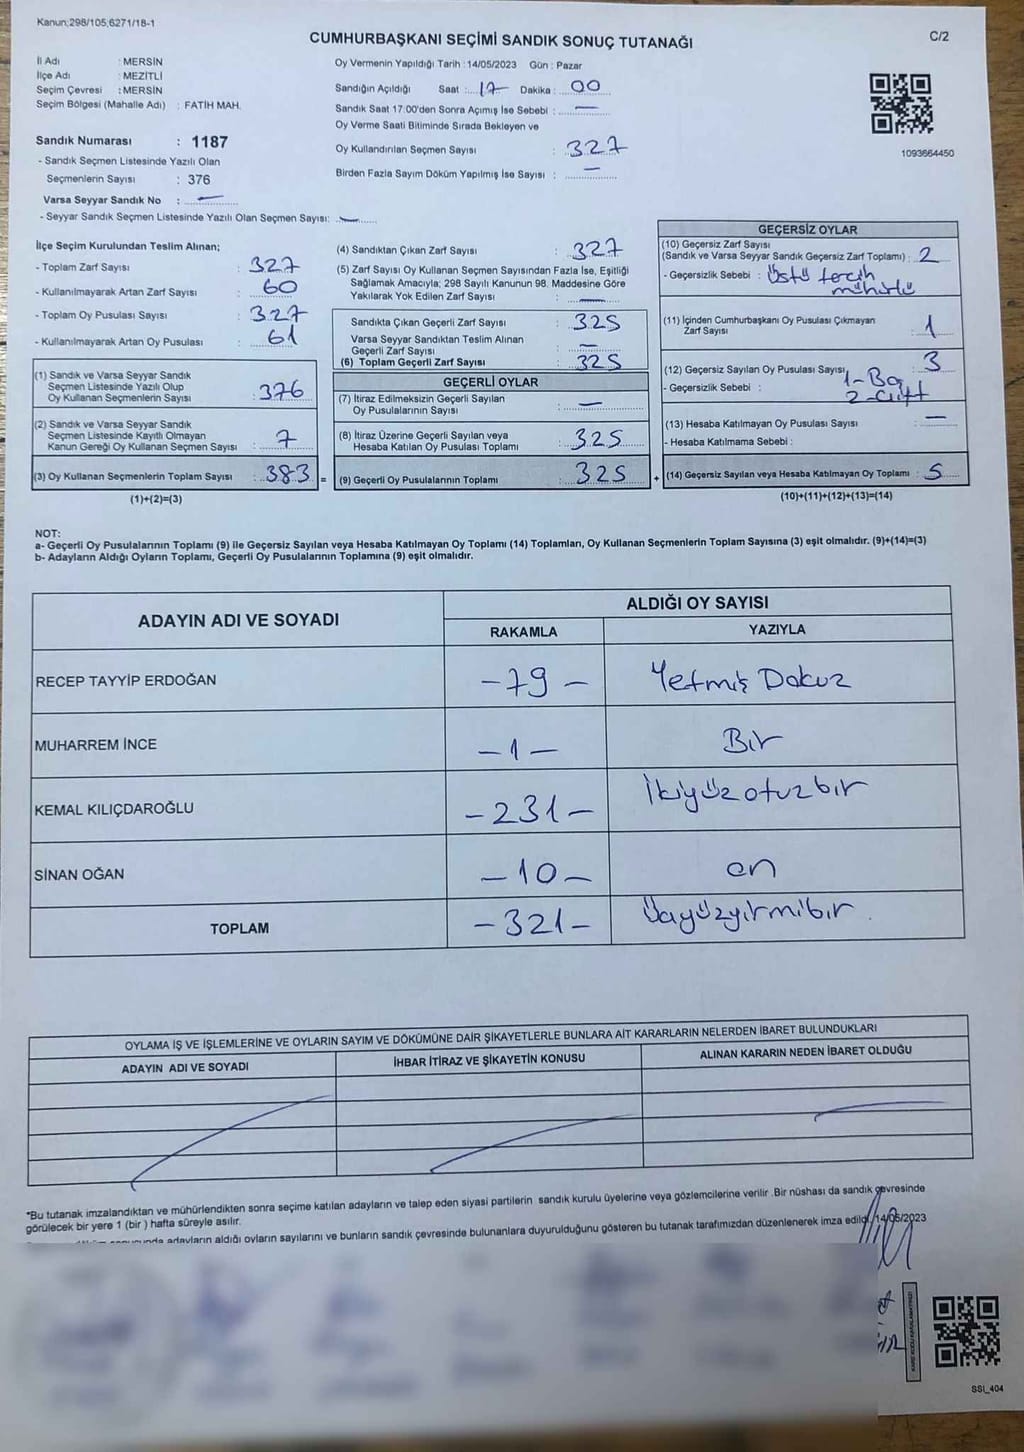 Kanun;298/105,6271/18-1
C/2
CUMHURBAŞKANI SEÇİMİ SANDIK SONUÇ TUTANAĞI
İl Adı : MERSİN
İlçe Adı : MEZİTLİ
Seçim Çevresi : MERSİN
Seçim Bölgesi (Mahalle Adı) : FATİH MAH.
Sandık Numarası : 1187
- Sandık Seçmen Listesinde Yazılı Olan
Seçmenlerin Sayısı : 376
Varsa Seyyar Sandık No : —
- Seyyar Sandık Seçmen Listesinde Yazılı Olan Seçmen Sayısı: —
Oy Vermenin Yapıldığı Tarih : 14/05/2023 Gün : Pazar
Sandığın Açıldığı Saat : 17 Dakika : 00
Sandık Saat 17:00'den Sonra Açımış İse Sebebi : —
Oy Verme Saati Bitiminde Sırada Bekleyen ve
Oy Kullandırılan Seçmen Sayısı : 327
Birden Fazla Sayım Döküm Yapılmış İse Sayısı : —
1093664450
İlçe Seçim Kurulundan Teslim Alınan;
- Toplam Zarf Sayısı : 327
- Kullanılmayarak Artan Zarf Sayısı : 60
- Toplam Oy Pusulası Sayısı : 327
- Kullanılmayarak Artan Oy Pusulası : 61
(1) Sandık ve Varsa Seyyar Sandık
Seçmen Listesinde Yazılı Olup
Oy Kullanan Seçmenlerin Sayısı : 376
(2) Sandık ve Varsa Seyyar Sandık
Seçmen Listesinde Kayıtlı Olmayan
Kanun Gereği Oy Kullanan Seçmen Sayısı : 7
(3) Oy Kullanan Seçmenlerin Toplam Sayısı : 383 =
(1)+(2)=(3)
(4) Sandıktan Çıkan Zarf Sayısı : 327
(5) Zarf Sayısı Oy Kullanan Seçmen Sayısından Fazla İse, Eşitliği
Sağlamak Amacıyla; 298 Sayılı Kanunun 98. Maddesine Göre
Yakılarak Yok Edilen Zarf Sayısı : —
Sandıkta Çıkan Geçerli Zarf Sayısı : 325
Varsa Seyyar Sandıktan Teslim Alınan
Geçerli Zarf Sayısı : —
(6) Toplam Geçerli Zarf Sayısı : 325
GEÇERLİ OYLAR
(7) İtiraz Edilmeksizin Geçerli Sayılan
Oy Pusulalarının Sayısı : —
(8) İtiraz Üzerine Geçerli Sayılan veya
Hesaba Katılan Oy Pusulası Toplamı : 325
(9) Geçerli Oy Pusulalarının Toplamı : 325 +
GEÇERSİZ OYLAR
(10) Geçersiz Zarf Sayısı
(Sandık ve Varsa Seyyar Sandık Geçersiz Zarf Toplamı) : 2
- Geçersizlik Sebebi : Üstü tercih
mühürlü
(11) İçinden Cumhurbaşkanı Oy Pusulası Çıkmayan
Zarf Sayısı : 1
(12) Geçersiz Sayılan Oy Pusulası Sayısı : 3
- Geçersizlik Sebebi : 1-Boş
2-Çift
(13) Hesaba Katılmayan Oy Pusulası Sayısı : —
- Hesaba Katılmama Sebebi :
(14) Geçersiz Sayılan veya Hesaba Katılmayan Oy Toplamı : 5
(10)+(11)+(12)+(13)=(14)
NOT:
a- Geçerli Oy Pusulalarının Toplamı (9) ile Geçersiz Sayılan veya Hesaba Katılmayan Oy Toplamı (14) Toplamları, Oy Kullanan Seçmenlerin Toplam Sayısına (3) eşit olmalıdır. (9)+(14)=(3)
b- Adayların Aldığı Oyların Toplamı, Geçerli Oy Pusulalarının Toplamına (9) eşit olmalıdır.
ADAYIN ADI VE SOYADI
ALDIĞI OY SAYISI
RAKAMLA YAZIYLA
RECEP TAYYİP ERDOĞAN -79- Yetmiş Dokuz
MUHARREM İNCE -1- Bir
KEMAL KILIÇDAROĞLU -231- İkiyüzotuzbir
SİNAN OĞAN -10- on
TOPLAM -321- Üçyüzyirmibir .
OYLAMA İŞ VE İŞLEMLERİNE VE OYLARIN SAYIM VE DÖKÜMÜNE DAİR ŞİKAYETLERLE BUNLARA AİT KARARLARIN NELERDEN İBARET BULUNDUKLARI
ADAYIN ADI VE SOYADI İHBAR İTİRAZ VE ŞİKAYETİN KONUSU ALINAN KARARIN NEDEN İBARET OLDUĞU
*Bu tutanak imzalandıktan ve mühürlendikten sonra seçime katılan adayların ve talep eden siyasi partilerin sandık kurulu üyelerine veya gözlemcilerine verilir .Bir nüshası da sandık çevresinde
görülecek bir yere 1 (bir ) hafta süreyle asılır.
adayların aldığı oyların sayılarını ve bunların sandık çevresinde bulunanlara duyurulduğunu gösteren bu tutanak tarafımızdan düzenlenerek imza edildi. 14/05/2023
SSI_404